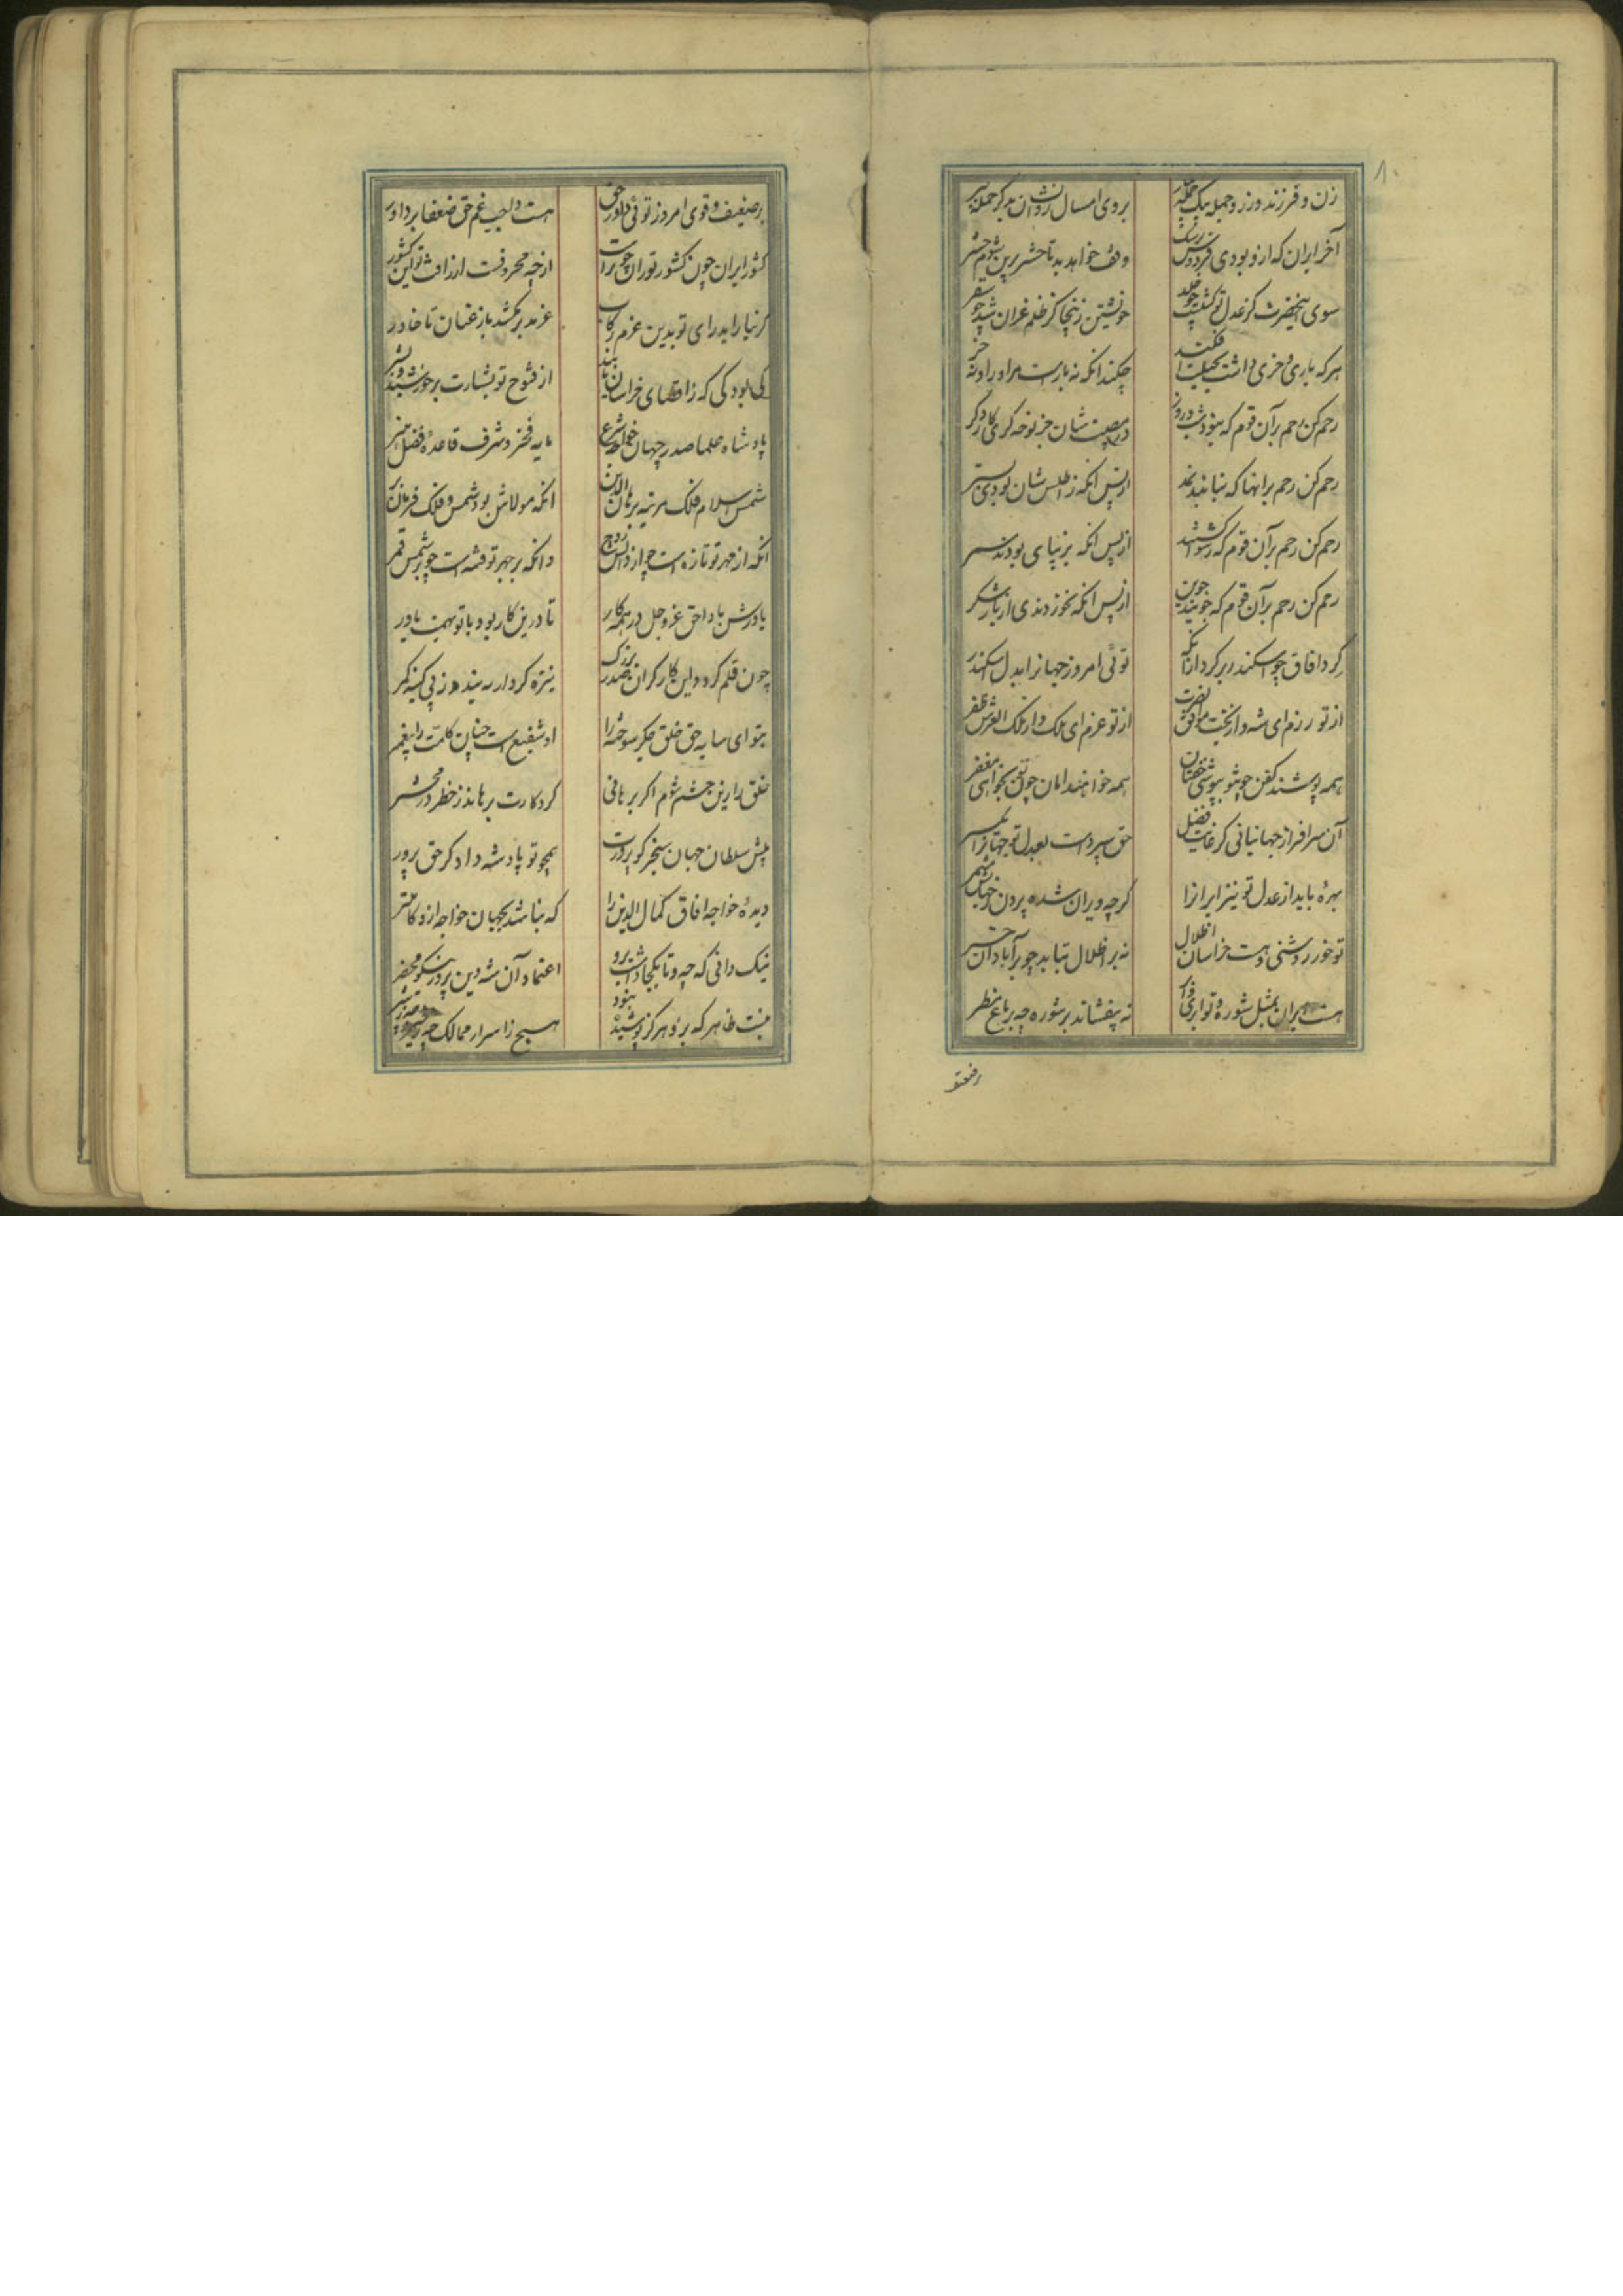 ۸۰
زن و فرزند و زر و جمله بیک حمله چو پار
بروی امسال روانشان بدگر حمله ببر
آخر ایران که ازو بودی فردوس برشک
وقف خواهد بد تا حشر برین شوم حشر
سوی آنحضرت کز عدل تو گشتست چو خلد
خویشتن زینجا کز ظلم غزان شد چو سقر
هرکه پایی و خری داشت بحیلت افکند
چکند آنکه نه پایست مر او را و نه خر
رحم کن رحم بر آن قوم که نبود شب و روز
در مصیبتشان جز نوحه گری کار دگر
رحم کن رحم بر آنها که نیابند نمد
از پس آنکه ز اطلس شان بودی بستر
رحم کن رحم بر آن قوم که رسوا گشتند
از پس آنکه بزیبایی بودند سمر
رحم کن رحم بر آن قوم که جویند جوین
از پس آنکه نخوردندی از ناز شکر
گرد آفاق چو اسکندر برگرد ازانکه
توئی امروز جهانرا بدل اسکندر
از تو رزم ای شه و از بخت موافق نصرت
از تو عزم ای ملک و از ملک العرش ظفر
همه پوشند کفن چو تو بپوشی خفتان
همه خواهند امان چون تو بخواهی مغفر
آن سرافراز جهانبانی کز غایت فضل
حق سپردست بعدل تو جهانرا یکسر
بهره باید از عدل تو نیز ایرانرا
گرچه ویران شده بیرون ز جهانش مشمر
تو خور روشنی و هست خراسان اطلال
نه بر اطلال بتابد چو بر آبادان خور
هست ایران بمثل شوره و تو ابری و ابر
نه بیفشاند بر شوره چو بر باغ مطر
رفتو
بر ضعیف و قوی امروز توئی داور حق
هست واجب غم حق ضعفا بر داور
کشور ایران چون کشور توران چو تراست
از چه محرومست از رافت تو این کشور
گر نیاراید رای تو بدین عزم رکاب
غز مدبر نکشد باز عنان تا خاور
کی بود کی که ز اقصای خراسان آرند
از فتوح تو بشارت بر خورشید بشر
پادشاه علما صدر جهان خواجه شرع
مایه فخر و شرف قاعده فضل و هنر
شمس اسلام فلک مرتبه برهان الدین
آنکه مولاش بود شمس و فلک فرمان بر
آنکه از مهر تو تازه است چو از دانش روح
وانکه بر چهر تو فتنه است چو بر شمس قمر
یاورش باد حق عز و جل در همه کار
تا درین کار بود با تو بهمت یاور
چون قلم گردد این کار گر آن صدر بزرگ
نیزه کردار ببندد ز پی کینه کمر
بتو ای سایه حق خلق جگر سوخته را
او شفیع است چنان کامت را پیغمبر
خلق را زین حشم شوم اگر برهانی
کردگارت برهاند ز خطر در محشر
پیش سلطان جهان سنجر کو پروردت
همچو تو پادشه دادگر حق پرور
دیده خواجه آفاق کمال الدین را
که نباشد بجهان خواجه ازو کاملتر
نیک دانی که چه و تا بکجا داشت برو
اعتماد آن شه دین پرور نیکو محضر
هست ظاهر که برو هرگز پوشیده نبود
هیچ ز اسرار ممالک چه ز خیر و چه ز شر